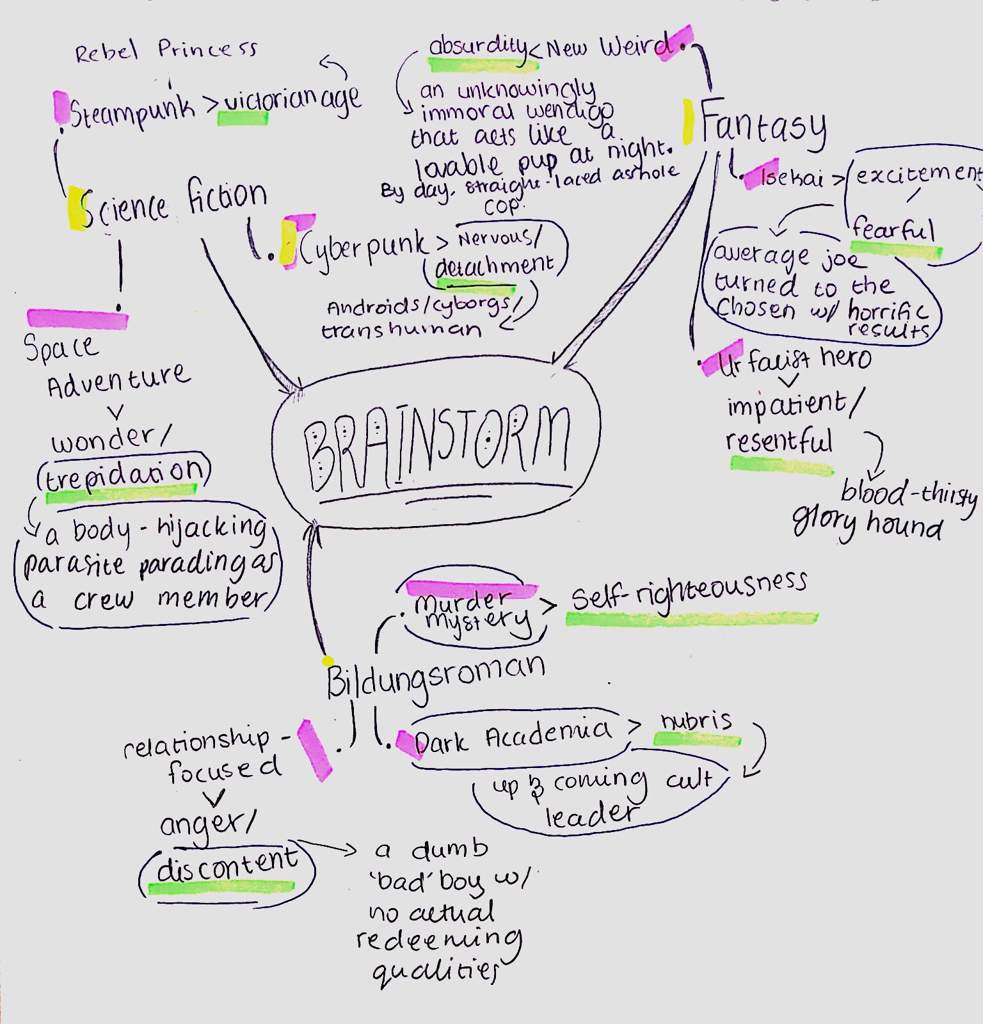 Rebel Princess
Steampunk > victorian age
Science fiction
Cyberpunk > Nervous/
detachment
Androids/cyborgs/
transhuman
Space
Adventure
wonder/
trepidation
a body-hijacking
parasite parading as
a crew member
absurdity < New Weird
an unknowingly
immoral wendigo
that acts like a
lovable pup at night.
By day, straight-laced asshole
cop.
Fantasy
Isekai > excitement
fearful
average joe
turned to the
Chosen w/ horrific
results
hero
impatient/
resentful
blood-thirsty
glory hound
BRAINSTORM
Murder
mystery > self-righteousness
Bildungsroman
Dark Academia > hubris
up & coming cult
leader
relationship-
focused
anger/
discontent
a dumb
'bad' boy w/
no actual
redeeming
qualities